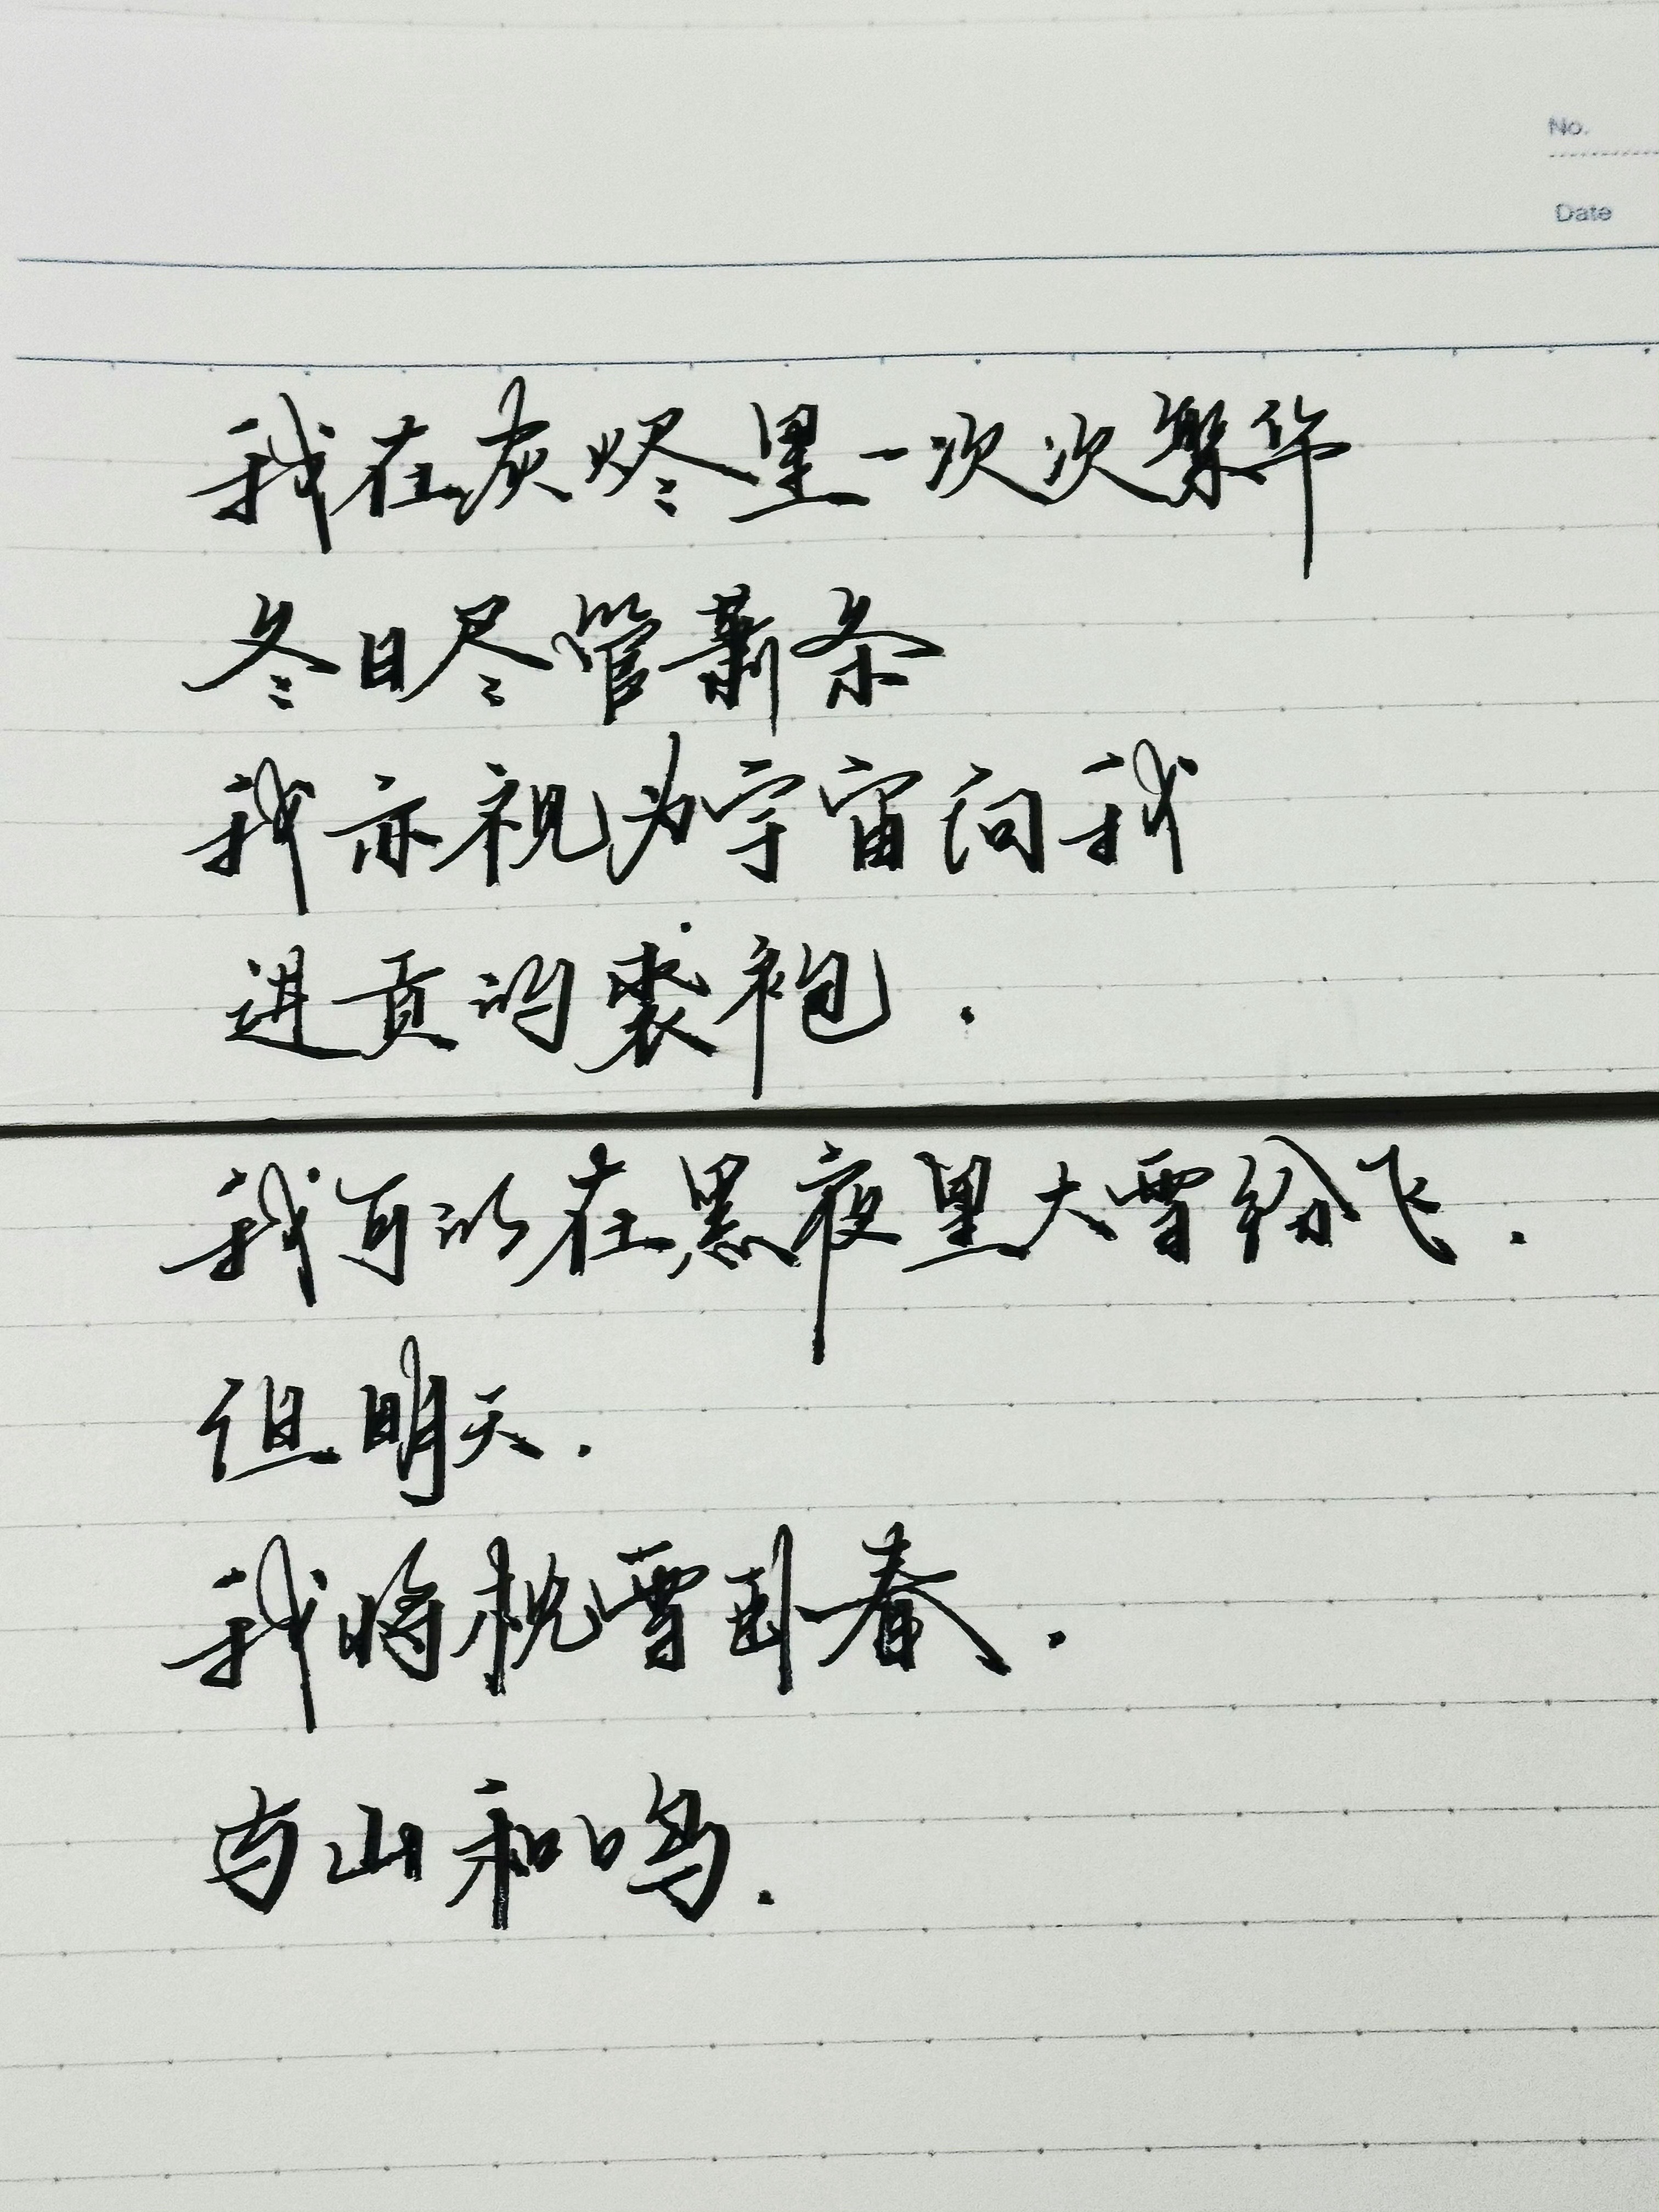 No.
Date
我在灰烬里一次次繁华
冬日尽管萧条
我亦视为宇宙向我
进贡的裘袍.
我可以在黑夜里大雪纷飞.
但明天.
我将枕雪卧春.
与山和鸣.